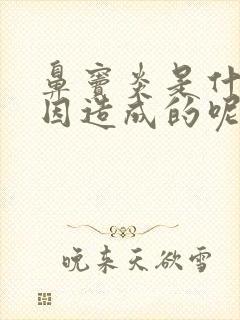 鼻窦炎是什
因造成的呢
晚来天欲雪